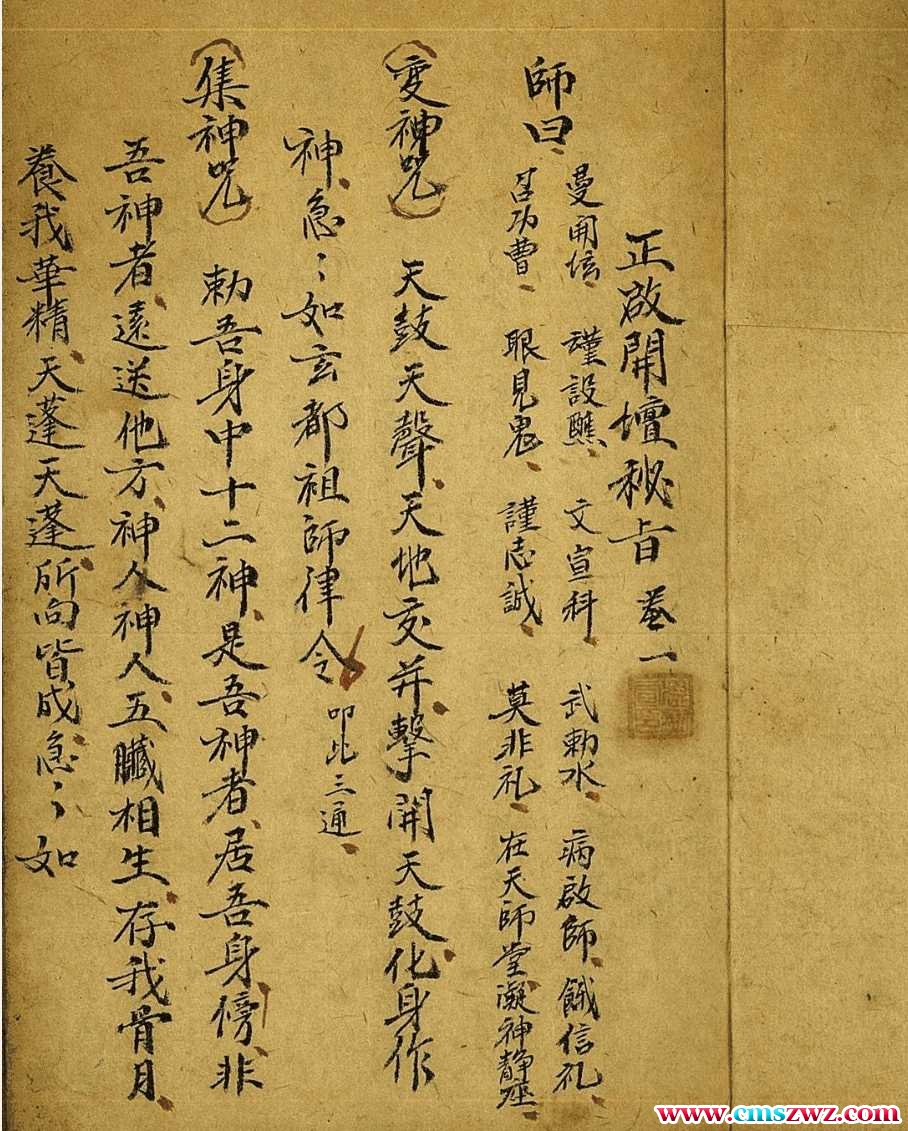 正啟開壇秘旨 卷一
師曰 曼開信 謹設醮 文宣科 武勅水 病啟師 餓信礼
甚功曹 眼見鬼 謹志誠 莫非礼 在天師堂凝神静座
(変神咒) 天鼓天聲天地交并擊開天鼓化身作
神急〻如玄都祖師律令 叩比三通
(集神咒) 勅吾身中十二神是吾神者居吾身傍非
吾神者遠送他方神人神人五臓相生存我骨月
養我華精天蓬天蓬所向皆成急〻如
www.cmszwz.com